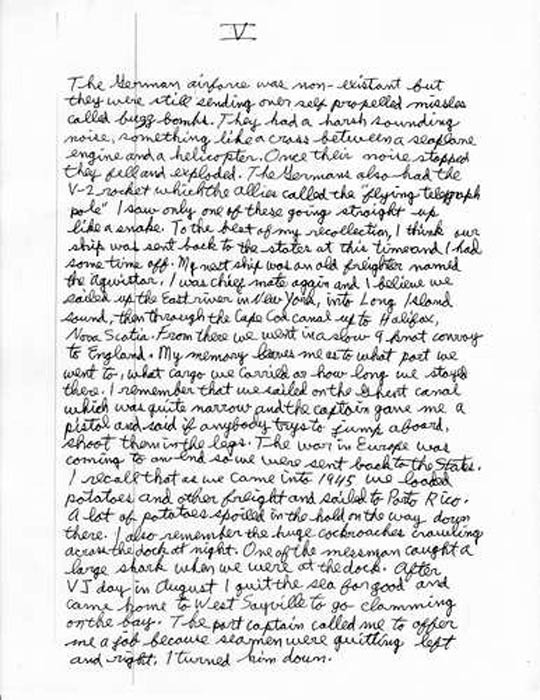 V
The German airforce was non-existant but
they were still sending over self propelled missles
called buzz bombs. They had a harsh sounding
noise, something like a cross between a seaplane
engine and a helicopter. Once their noise stopped
they fell and exploded. The Germans also had the
V-2 rocket which the allies called the "flying telegraph
pole" I saw only one of these going straight up
like a snake. To the best of my recollection, I think our
ship was sent back to the states at this time and I had
some time off. My next ship was an old freighter named
the Aquistar. I was chief mate again and I believe we
sailed up the East river in New York, into Long Island
sound, then through the Cape Cod canal up to Halifax,
Nova Scotia. From there we went in a slow 9 knot convoy
to England. My memory leaves me as to what port we
went to, what cargo we carried or how long we stayed
there. I remember that we sailed on the Ghent canal
which was quite narrow and the captain gave me a
pistol and said if anybody trys to jump aboard,
shoot them in the legs. The war in Europe was
coming to an end so we were sent back to the States.
I recall that as we came into 1945 we loaded
potatoes and other freight and sailed to Porto Rico.
A lot of potatoes spoiled in the hold on the way down
there. I also remember the huge cockroaches crawling
across the dock at night. One of the messman caught a
large shark when we were at the dock. After
VJ day in August I quit the sea for good and
came home to West Sayville to go clamming
on the bay. The port captain called me to offer
me a job because seamen were quitting left
and right. I turned him down.